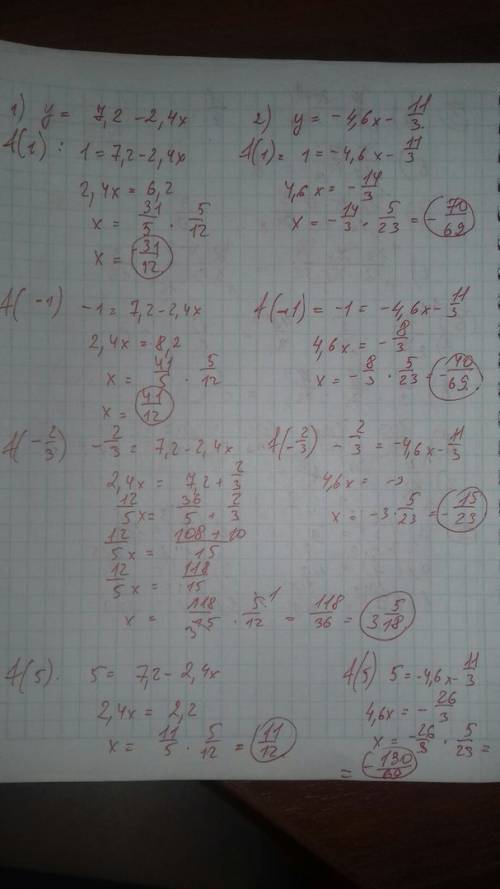 1) y = 7,2 - 2,4x
A(1): 1 = 7,2 - 2,4x
2,4x = 6,2
x = 31/5 · 5/12
x = 31/12
2) y = -4,6x - 11/3
A(1) = 1 = -4,6x - 11/3
4,6x = -14/3
x = -14/3 · 5/23 = -70/69
A(-1) -1 = 7,2 - 2,4x
2,4x = 8,2
x = 41/5 · 5/12
x = 41/12
A(-1) = -1 = -4,6x - 11/3
4,6x = -8/3
x = -8/3 · 5/23 = -40/69
A(-2/3) -2/3 = 7,2 - 2,4x
2,4x = 7,2 + 2/3
12/5 x = 36/5 + 2/3
12/5 x = 108+10/15
12/5 x = 118/15
x = 118/15 · 5/12 = 118/36 = 3 5/18
A(-2/3) -2/3 = -4,6x - 11/3
4,6x = -3
x = -3 · 5/23 = -15/23
A(5). 5 = 7,2 - 2,4x
2,4x = 2,2
x = 11/5 · 5/12 = 11/12
A(5) 5 = -4,6x - 11/3
4,6x = -26/3
x = -26/3 · 5/23 =
= -130/69